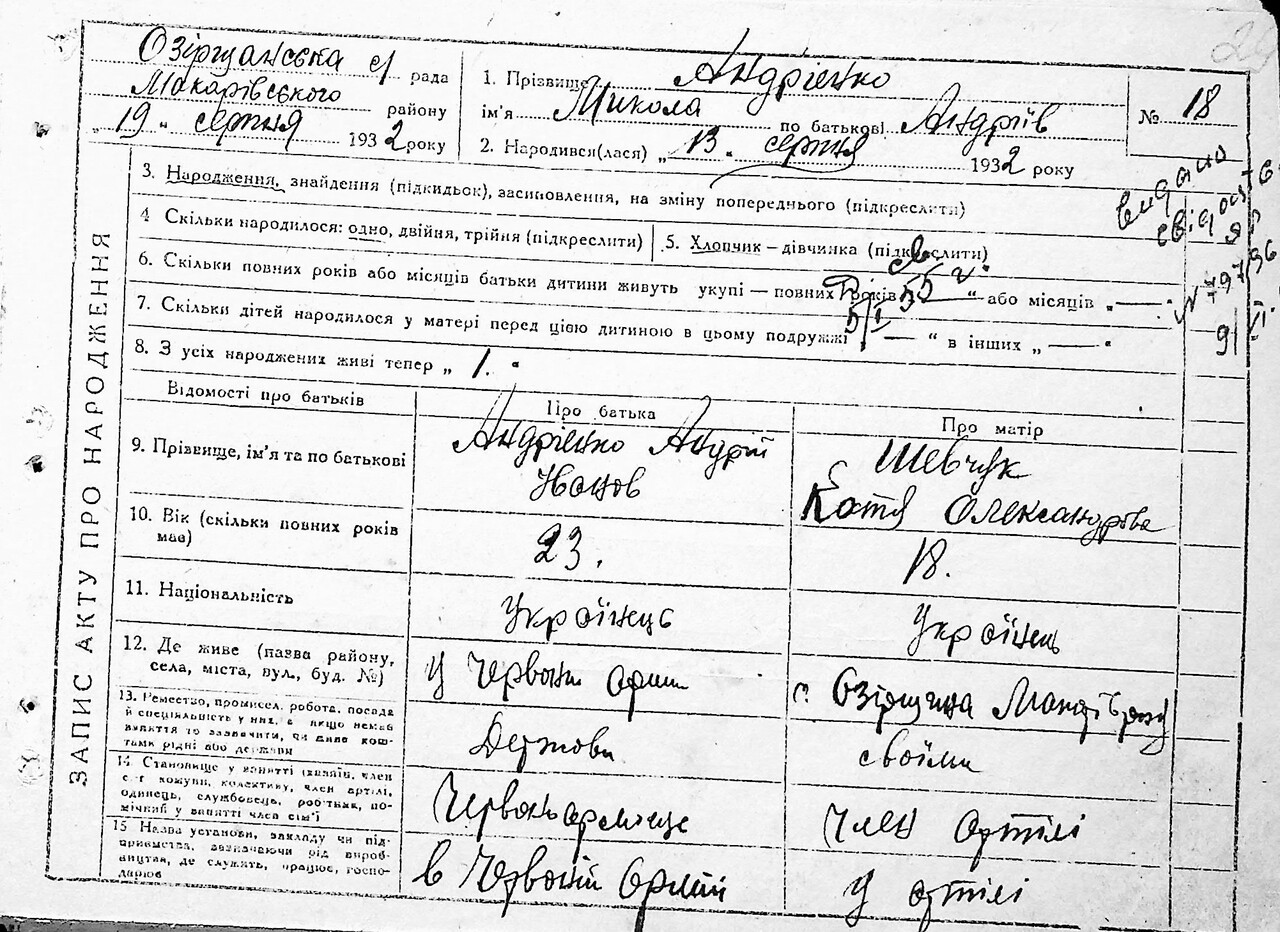 29
Озірщанська с/ рада
Макарівського району
„ 19 „ серпня 1932 року
1. Прізвище Андрієнко
ім'я Микола по батькові Андріїв
2. Народився(лася) „ 13 „ серпня 1932 року
№ 18
3. Народження, знайдення (підкидьок), засиновлення, на зміну попереднього (підкреслити)
4 Скільки народилося: одно, двійня, трійня (підкреслити)
5. Хлопчик – дівчинка (підкреслити)
6. Скільки повних років або місяців батьки дитини живуть укупі — повних років — “ або місяців „ — “
7. Скільки дітей народилося у матері перед цією дитиною в цьому подружжі — “ в інших „ — “
8. З усіх народжених живі тепер „ 1. “
видано
свідоцт
ЗАПИС АКТУ ПРО НАРОДЖЕННЯ
Відомості про батьків
Про батька
Про матір
9. Прізвище, ім'я та по батькові
Андрієнко Андрій
Іванов
Шевчук
Катя Олександрівна
10. Вік (скільки повних років
має)
23.
18.
11. Національність
Українець
Українець
12. Де живе (назва району,
села, міста, вул., буд. №)
у Червоні армии
с. Озірщина Макарівраю
13. Ремество, промисел, робота, посада
й спеціальність у них, а якщо немає
заняття то зазначити, чи живе кош-
тами рідні або держави
Держави
своїми
14. Становище у занятті (хазяїн, член
с-г комуни, колективу, член артілі,
одинець, службовець, робітник, по-
мічний у занятті член сім'ї
Червоноармієць
член артілі
15 Назва установи, закладу чи під-
приємства, зазначаючи рід вироб-
ництва, де служить, працює, госпо-
дарює
в Червоній Армії
у артілі